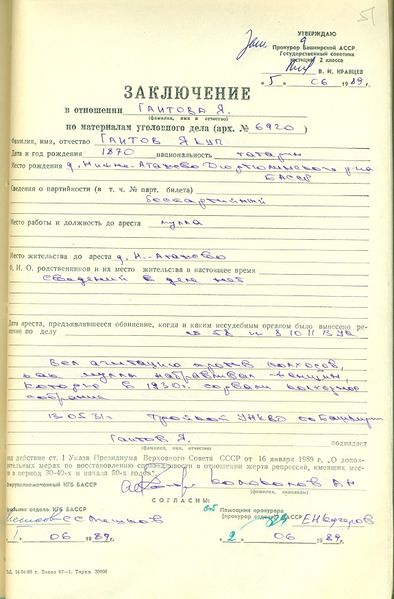 51
УТВЕРЖДАЮ
Зам.
Прокурор Башкирской АССР
Государственный советник
юстиции 2 класса
В. И. КРАВЦЕВ
« 5 » 06 1989 г.
ЗАКЛЮЧЕНИЕ
в отношении Гаитова Я.
(фамилия, имя и отчество)
по материалам уголовного дела (арх. № 6920)
Фамилия, имя, отчество Гаитов Якуп
Дата и год рождения 1870 национальность татарин
Место рождения д. Нижне-Атачево Дюртюлинского р-на
БАССР
Сведения о партийности (в т. ч. № парт. билета)
беспартийный
Место работы и должность до ареста мулла
Место жительства до ареста д. Н.-Атачево
Ф. И. О. родственников и их место жительства в настоящее время
сведений в деле нет
Дата ареста, предъявлявшееся обвинение, когда и каким несудебным органом было вынесено ре-
шение по делу 58 10 11 УК
Вел агитацию против колхозов,
мулла направлял женщин
которые в 1930 г. сорвали колхозное
собрание
13.05.31г. Тройкой
Гаитов Я. подпадает
(фамилия, имя, отчество)
на действие ст. 1 Указа Президиума Верховного Совета СССР от 16 января 1989 г. «О допол-
нительных мерах по восстановлению справедливости в отношении жертв репрессий, имевших мес-
то в период 30-40-х и начала 50-х годов».
оперуполномоченный КГБ БАССР
(фамилия, инициалы)
СОГЛАСНЫ:
отдела КГБ БАССР
Помощник прокурора
(прокурор отдела) БАССР
06 1989 г.
« 2 » 06 1989 г.